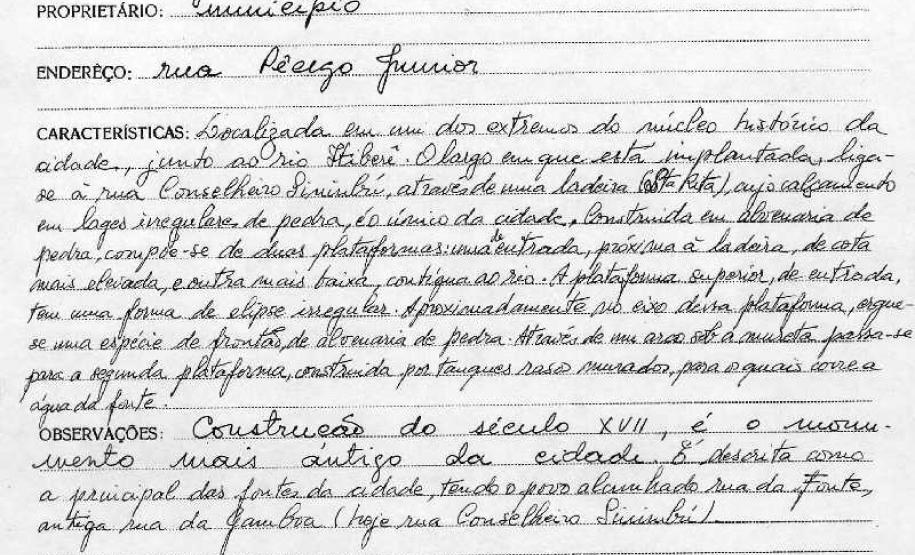 PROPRIETÁRIO: município
ENDERÊÇO: rua Pêcego Junior
CARACTERÍSTICAS: Localizada em um dos extremos do núcleo histórico da
cidade, junto ao rio Itiberê. O largo em que está implantada, liga-
se à rua Conselheiro Sinimbú, através de uma ladeira (Sta Rita), cujo calçamento
em lages irregulares de pedra, é o único da cidade. Construida em alvenaria de
pedra, compõe-se de duas plataformas: uma de entrada, próxima à ladeira, de cota
mais elevada, e outra mais baixa, contigua ao rio. A plataforma superior, de entrada,
tem uma forma de elipse irregular. Aproximadamente no eixo dessa plataforma, ergue-
se uma espécie de frontão, de alvenaria de pedra. Através de um arco sob a mureta passa-se
para a segunda plataforma, construida por tanques raso murados, para o quais corre a
água da fonte.
OBSERVAÇÕES: Construcão do século XVII, é o monu-
mento mais antigo da cidade. É descrita como
a principal das fontes da cidade, tendo o povo alcunhado rua da Fonte,
antiga rua da Gamboa (hoje rua Conselheiro Sinimbú).